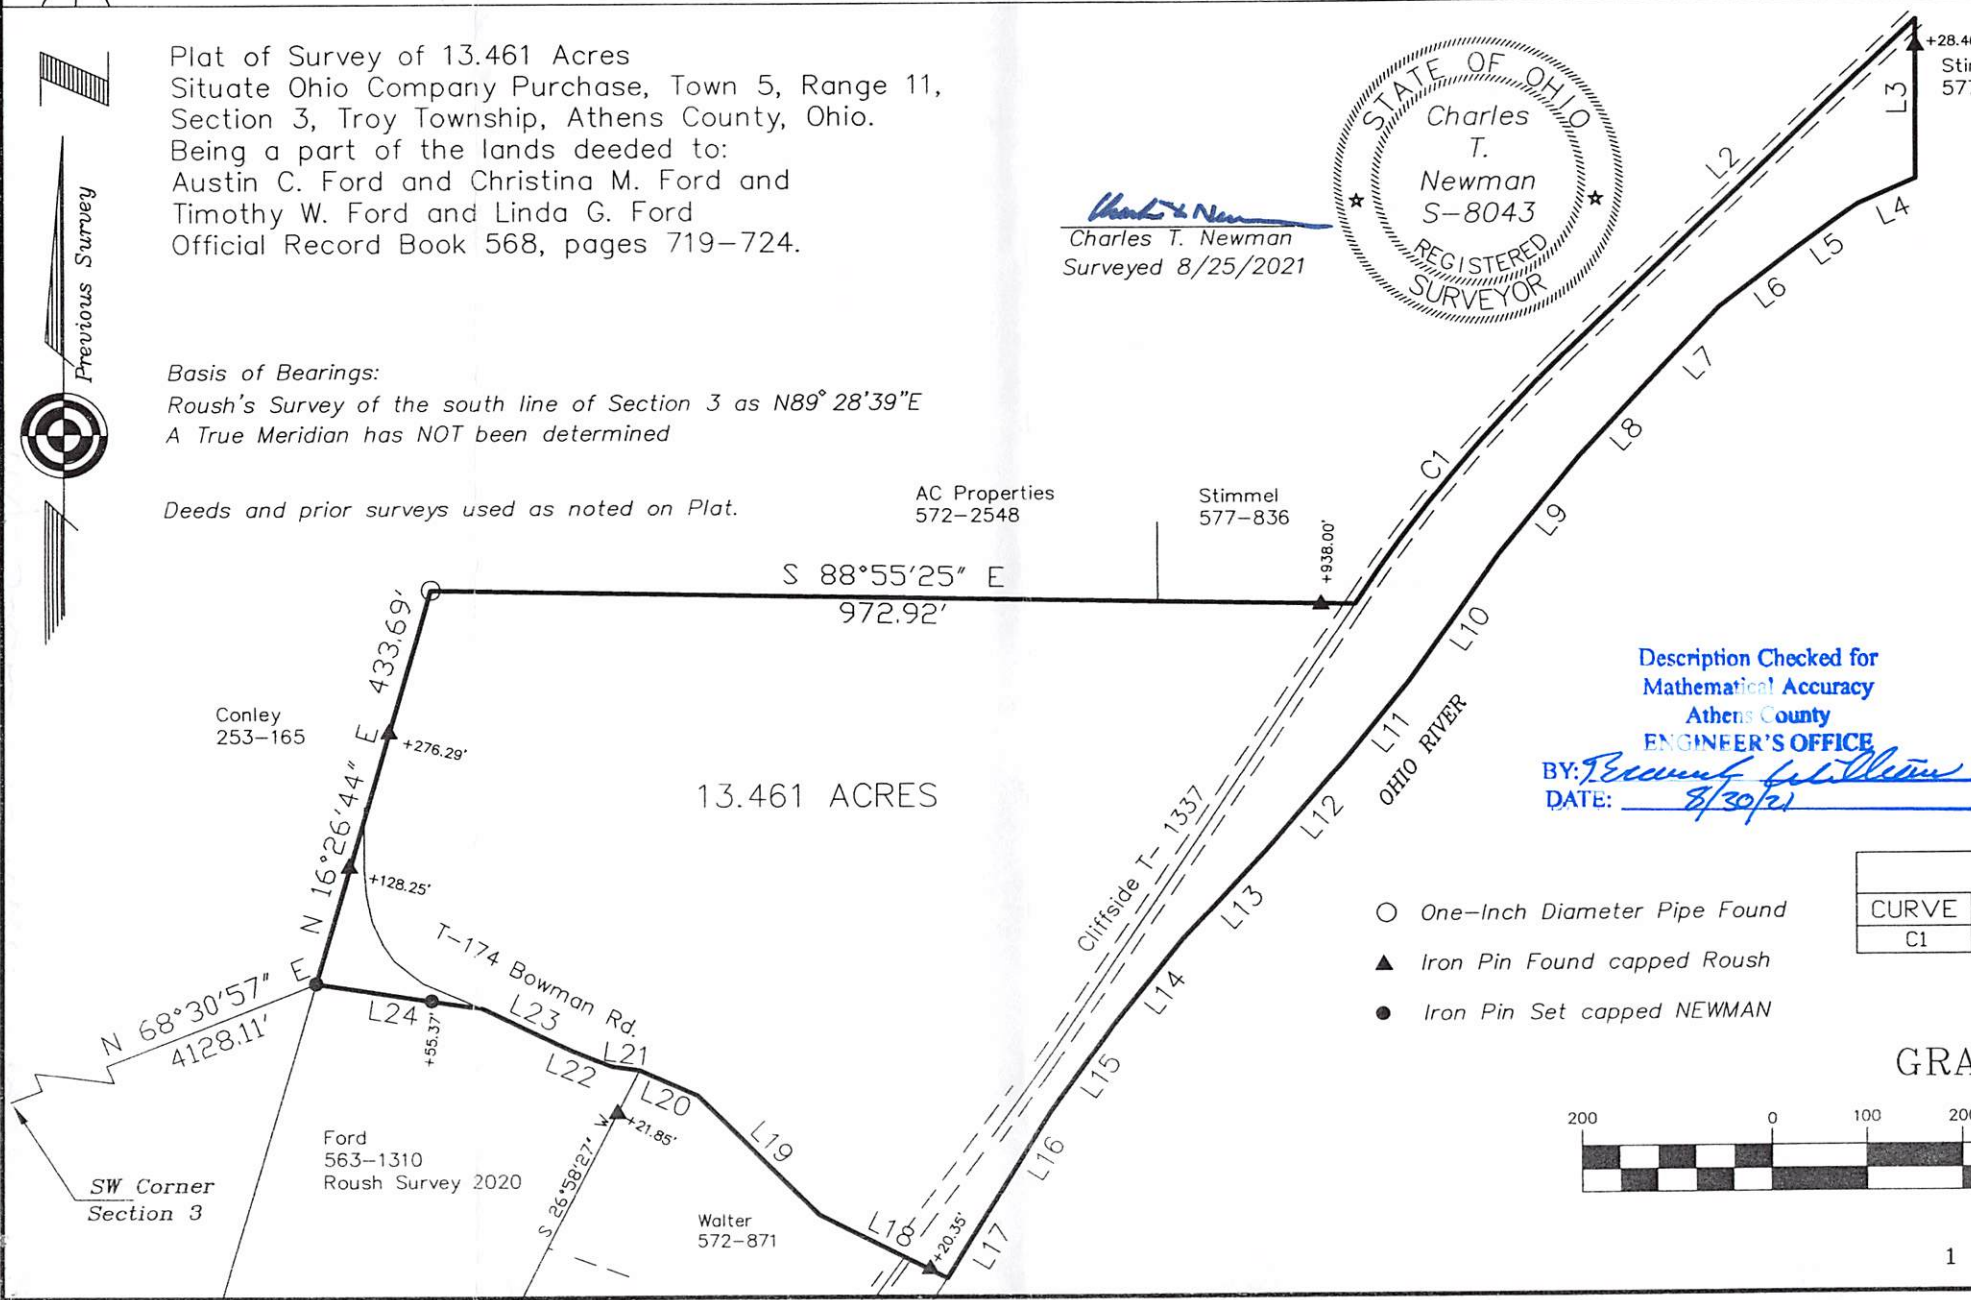 Plat of Survey of 13.461 Acres
Situate Ohio Company Purchase, Town 5, Range 11,
Section 3, Troy Township, Athens County, Ohio.
Being a part of the lands deeded to:
Austin C. Ford and Christina M. Ford and
Timothy W. Ford and Linda G. Ford
Official Record Book 568, pages 719-724.
Previous Survey
Basis of Bearings:
Roush's Survey of the south line of Section 3 as N89°28'39"E
A True Meridian has NOT been determined
Deeds and prior surveys used as noted on Plat.
Charles T. Newman
Surveyed 8/25/2021
STATE OF OHIO
Charles
T.
Newman
S-8043
REGISTERED
SURVEYOR
+28.4
577
L3
L2
L4
L5
L6
L7
L8
L9
L10
L11
L12
L13
L14
L15
L16
L17
C1
AC Properties
572-2548
Stimmel
577-836
+938.00'
S 88°55'25" E
972.92'
N 16°26'44" E 433.69'
+276.29'
+128.25'
Conley
253-165
13.461 ACRES
Cliffside T-1337
OHIO RIVER
Description Checked for
Mathematical Accuracy
Athens County
ENGINEER'S OFFICE
BY:
DATE: 8/30/21
CURVE
C1
One-Inch Diameter Pipe Found
Iron Pin Found capped Roush
Iron Pin Set capped NEWMAN
GRA
200 0 100 200
T-174 Bowman Rd.
N 68°30'57" E
4128.11'
L24
+55.37'
L23
L22
L21
L20
L19
L18
+20.35'
+21.85'
S 26°58'27" W
SW Corner
Section 3
Ford
563-1310
Roush Survey 2020
Walter
572-871
1